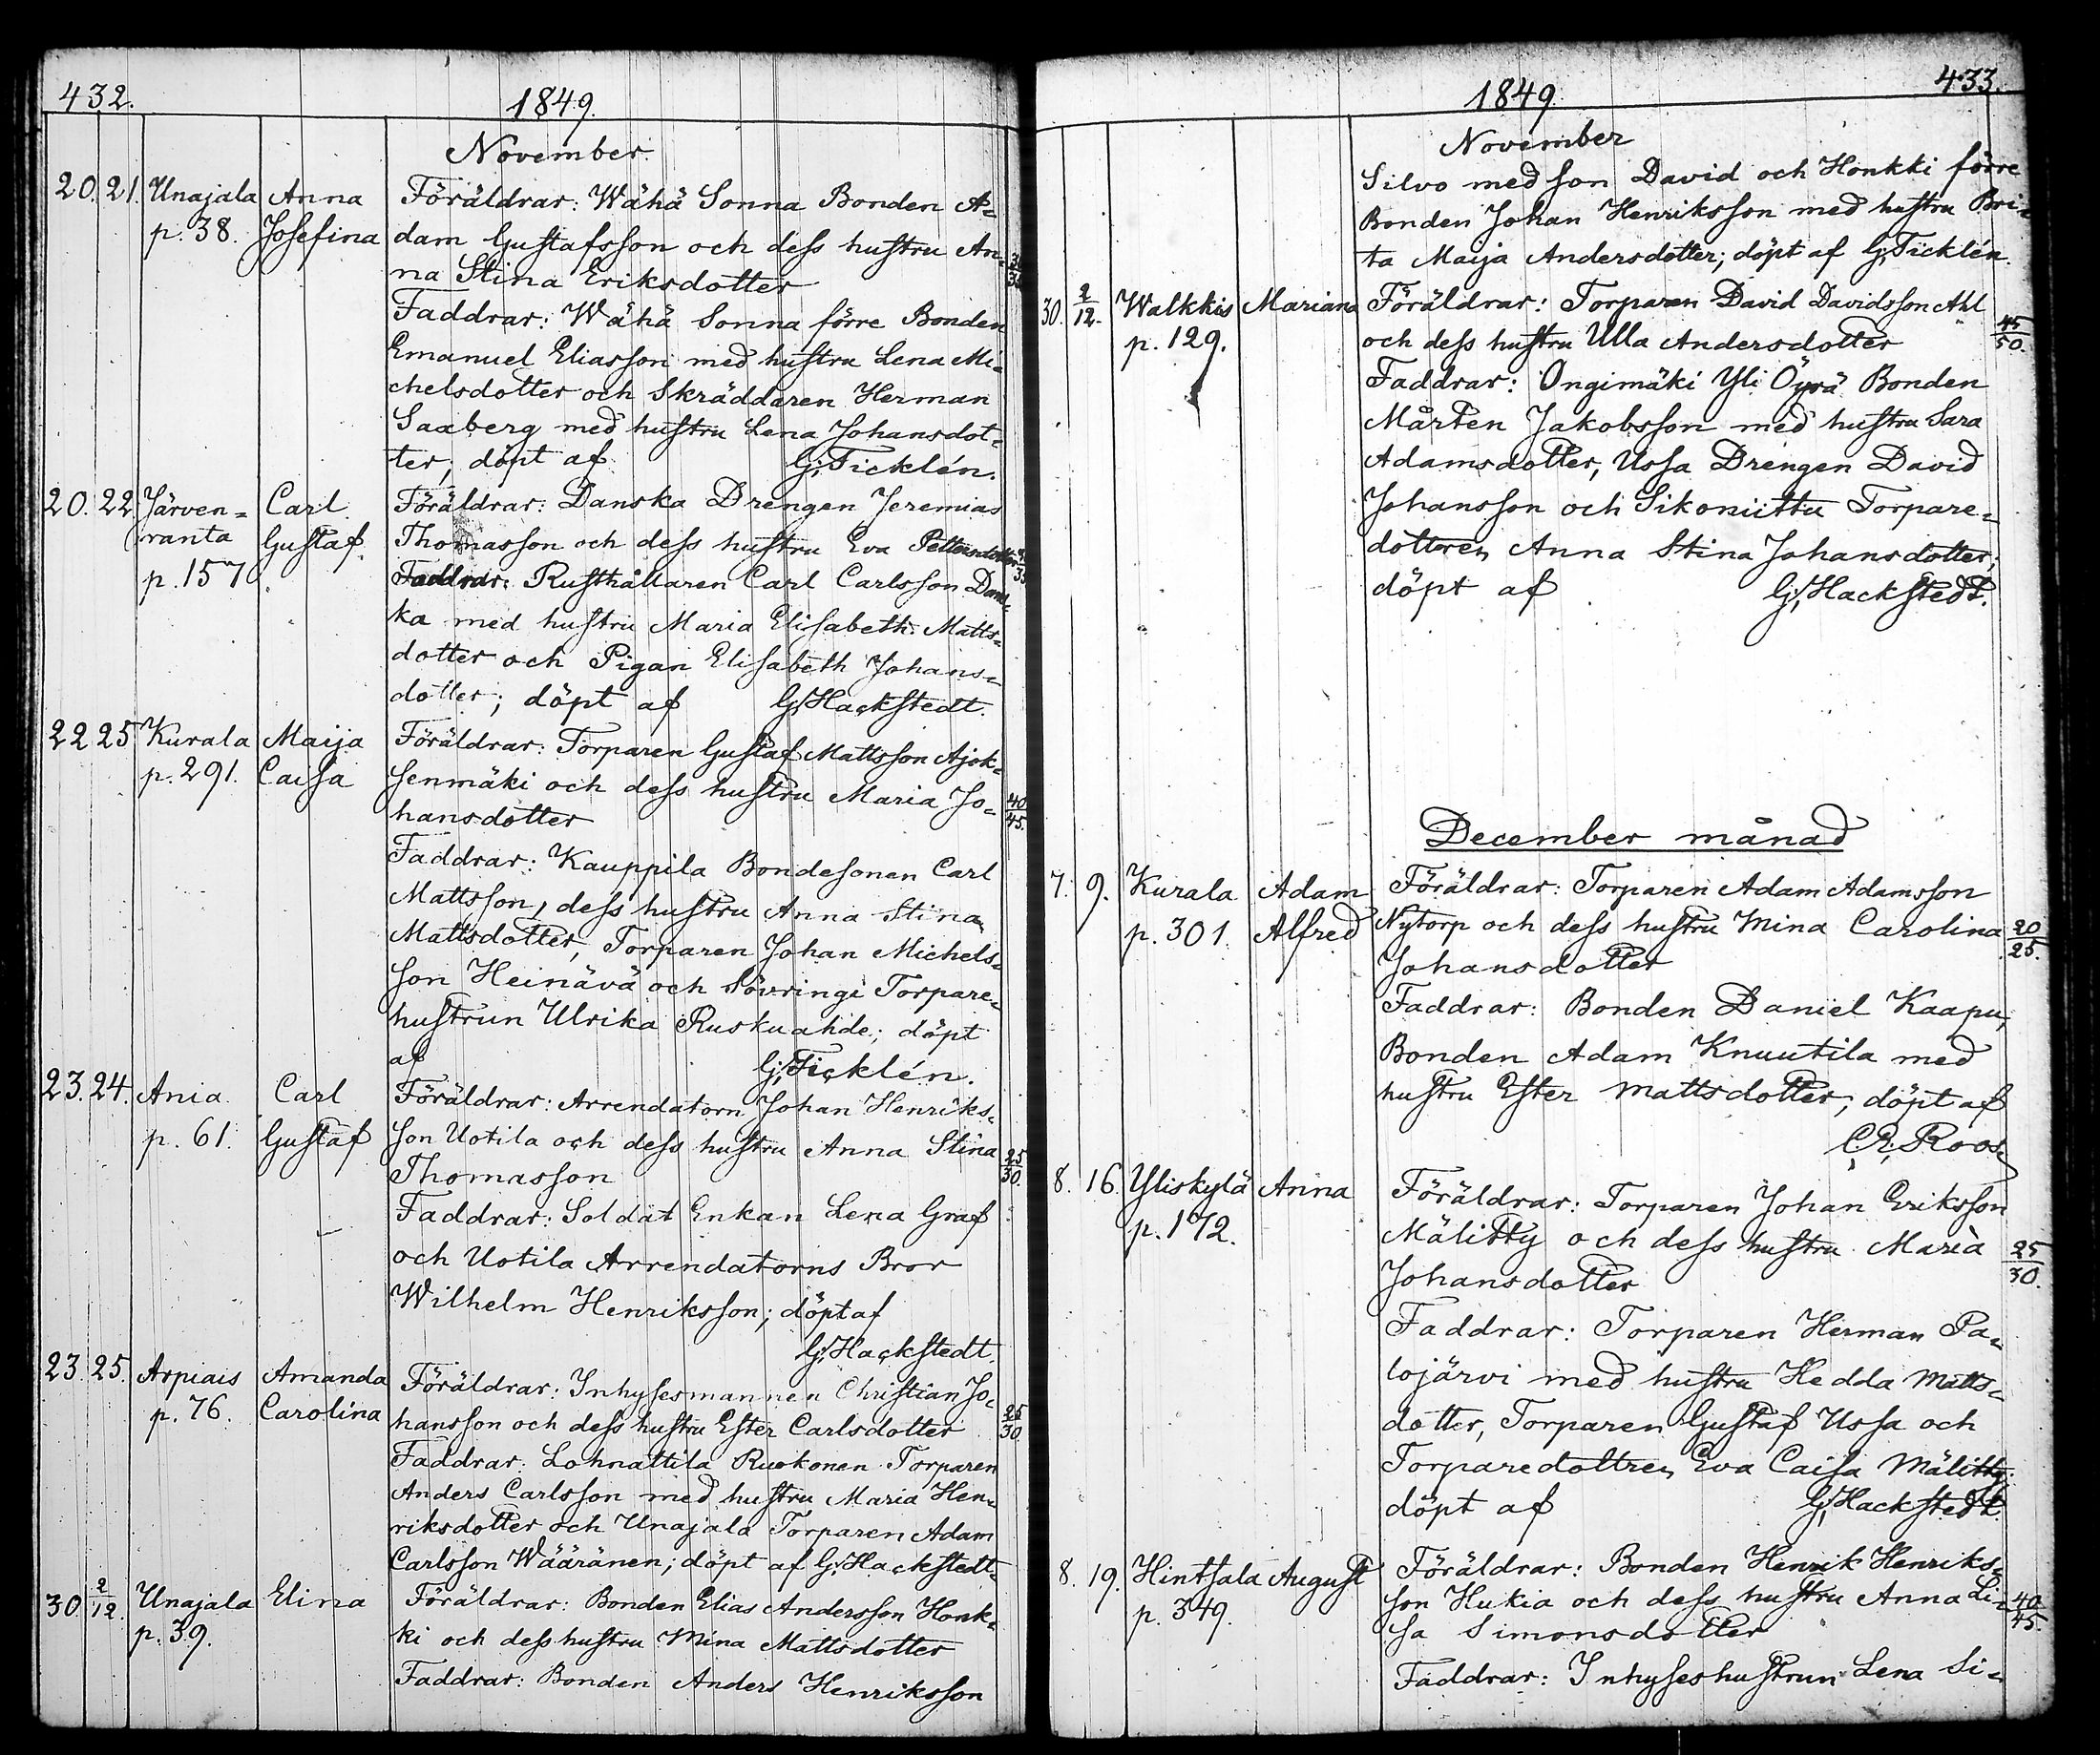 432.
1849.
November.
20. 21. Unajala Anna Föräldrar: Wähä Sonna Bonden A=
p. 38. Josefina dam Gustafsson och dess hustru An-
na Stina Eriksdotter
Faddrar: Wähä Sonna förre Bonden
Emanuel Eliasson med hustru Lena Mi-
chelsdotter och Skräddaren Herman
Saxberg med hustru Lena Johansdot-
ter; döpt af G; Ticklén.
20. 22 Järven= Carl Föräldrar: Danska Drengen Jeremias
ranta Gustaf. Thomasson och dess hustru Eva Pettersdotter
p. 157. Faddrar: Rusthållaren Carl Carlsson Dans-
ka med hustru Maria Elisabeth Matts=
dotter och Pigan Elisabeth Johans=
dotter; döpt af G; Hackstedt.
22 25 Kurala Maija Föräldrar: Torparen Gustaf Mattsson Ajok-
p. 291. Caisa senmäki och dess hustru Maria Jo- 40/45.
hansdotter
Faddrar: Kauppila Bondesonen Carl
Mattsson, dess hustru Anna Stina
Mattsdotter, Torparen Johan Michels=
son Heinävä och Sövringi Torpare=
hustrun Ulrika Ruskuahde; döpt
af G; Ticklén.
23. 24. Ania Carl Föräldrar: Arrendatorn Johan Henriks-
p. 61. Gustaf son Uotila och dess hustru Anna Stina 25/30.
Thomasson
Faddrar: Soldat Enkan Lena Graf
och Uotila Arrendatorns Bror
Wilhelm Henriksson; döpt af
G; Hackstedt.
23. 25. Arpiais Amanda Föräldrar: Inhysesmannen Christian Jo-
p. 76. Carolina hansson och dess hustru Ester Carlsdotter 25/30.
Faddrar: Lohnattila Ruokonen Torparen
Anders Carlsson med hustru Maria Hen-
riksdotter och Unajala Torparen Adam
Carlsson Wääränen; döpt af G; Hackstedt.
30 2/12. Unajala Elina Föräldrar: Bonden Elias Andersson Honk-
p. 39. ki och dess hustru Mina Mattsdotter
Faddrar: Bonden Anders Henriksson
433.
1849.
November
Silvo med son David och Honkki förre
Bonden Johan Henriksson med hustru Bri-
ta Maija Andersdotter; döpt af G; Ticklén.
30. 2/12. Walkkis Mariana Föräldrar: Torparen David Davidsson Ahl
p. 129. och dess hustru Ulla Andersdotter 45/50.
Faddrar: Ongimäki Yli Öyrä Bonden
Mårten Jakobsson med hustru Sara
Adamsdotter, Ussa Drengen David
Johansson och Sikoniittu Torpare=
dottren Anna Stina Johansdotter;
döpt af G; Hackstedt.
December månad
7. 9. Kurala Adam Föräldrar: Torparen Adam Adamsson
p. 301. Alfred Nytorp och dess hustru Mina Carolina 20/25.
Johansdotter
Faddrar: Bonden Daniel Kaapu,
Bonden Adam Knuutila med
hustru Ester Mattsdotter; döpt af
C. E. Roos.
8. 16. Yliskylä Anna Föräldrar: Torparen Johan Eriksson
p. 172. Mälitty och dess hustru Maria 25/30.
Johansdotter
Faddrar: Torparen Herman Pa-
lojärvi med hustru Hedda Matts-
dotter, Torparen Gustaf Ussa och
Torparedottren Eva Caisa Mälitty;
döpt af G; Hackstedt
8. 19. Hintsala August Föräldrar: Bonden Henrik Henriks=
p. 349. son Hukia och dess hustru Anna Li= 40/45.
sa Simonsdotter
Faddrar: Inhyseshustrun Lena Si=